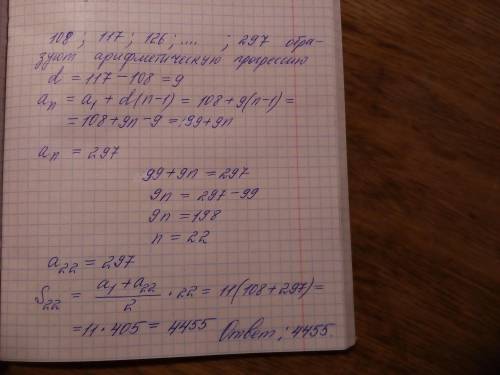 108 ; 117 ; 126 ; .... ; 297 обра-
зуют арифметическую прогрессию
d = 117 - 108 = 9
aₙ = a₁ + d(n-1) = 108 + 9(n-1) =
= 108 + 9n - 9 = 99 + 9n
aₙ = 297
99 + 9n = 297
9n = 297 - 99
9n = 198
n = 22
a₂₂ = 297
S₂₂ = (a₁ + a₂₂)/2 • 22 = 11(108 + 297) =
= 11 • 405 = 4455 Ответ: 4455.